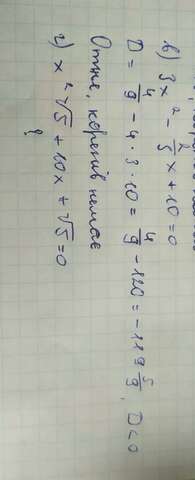 в) 3x² - 2/3 x + 10 = 0
D = 4/9 - 4 · 3 · 10 = 4/9 - 120 = -119 5/9, D < 0
Отже, коренів немає
г) x²√5 + 10x + √5 = 0